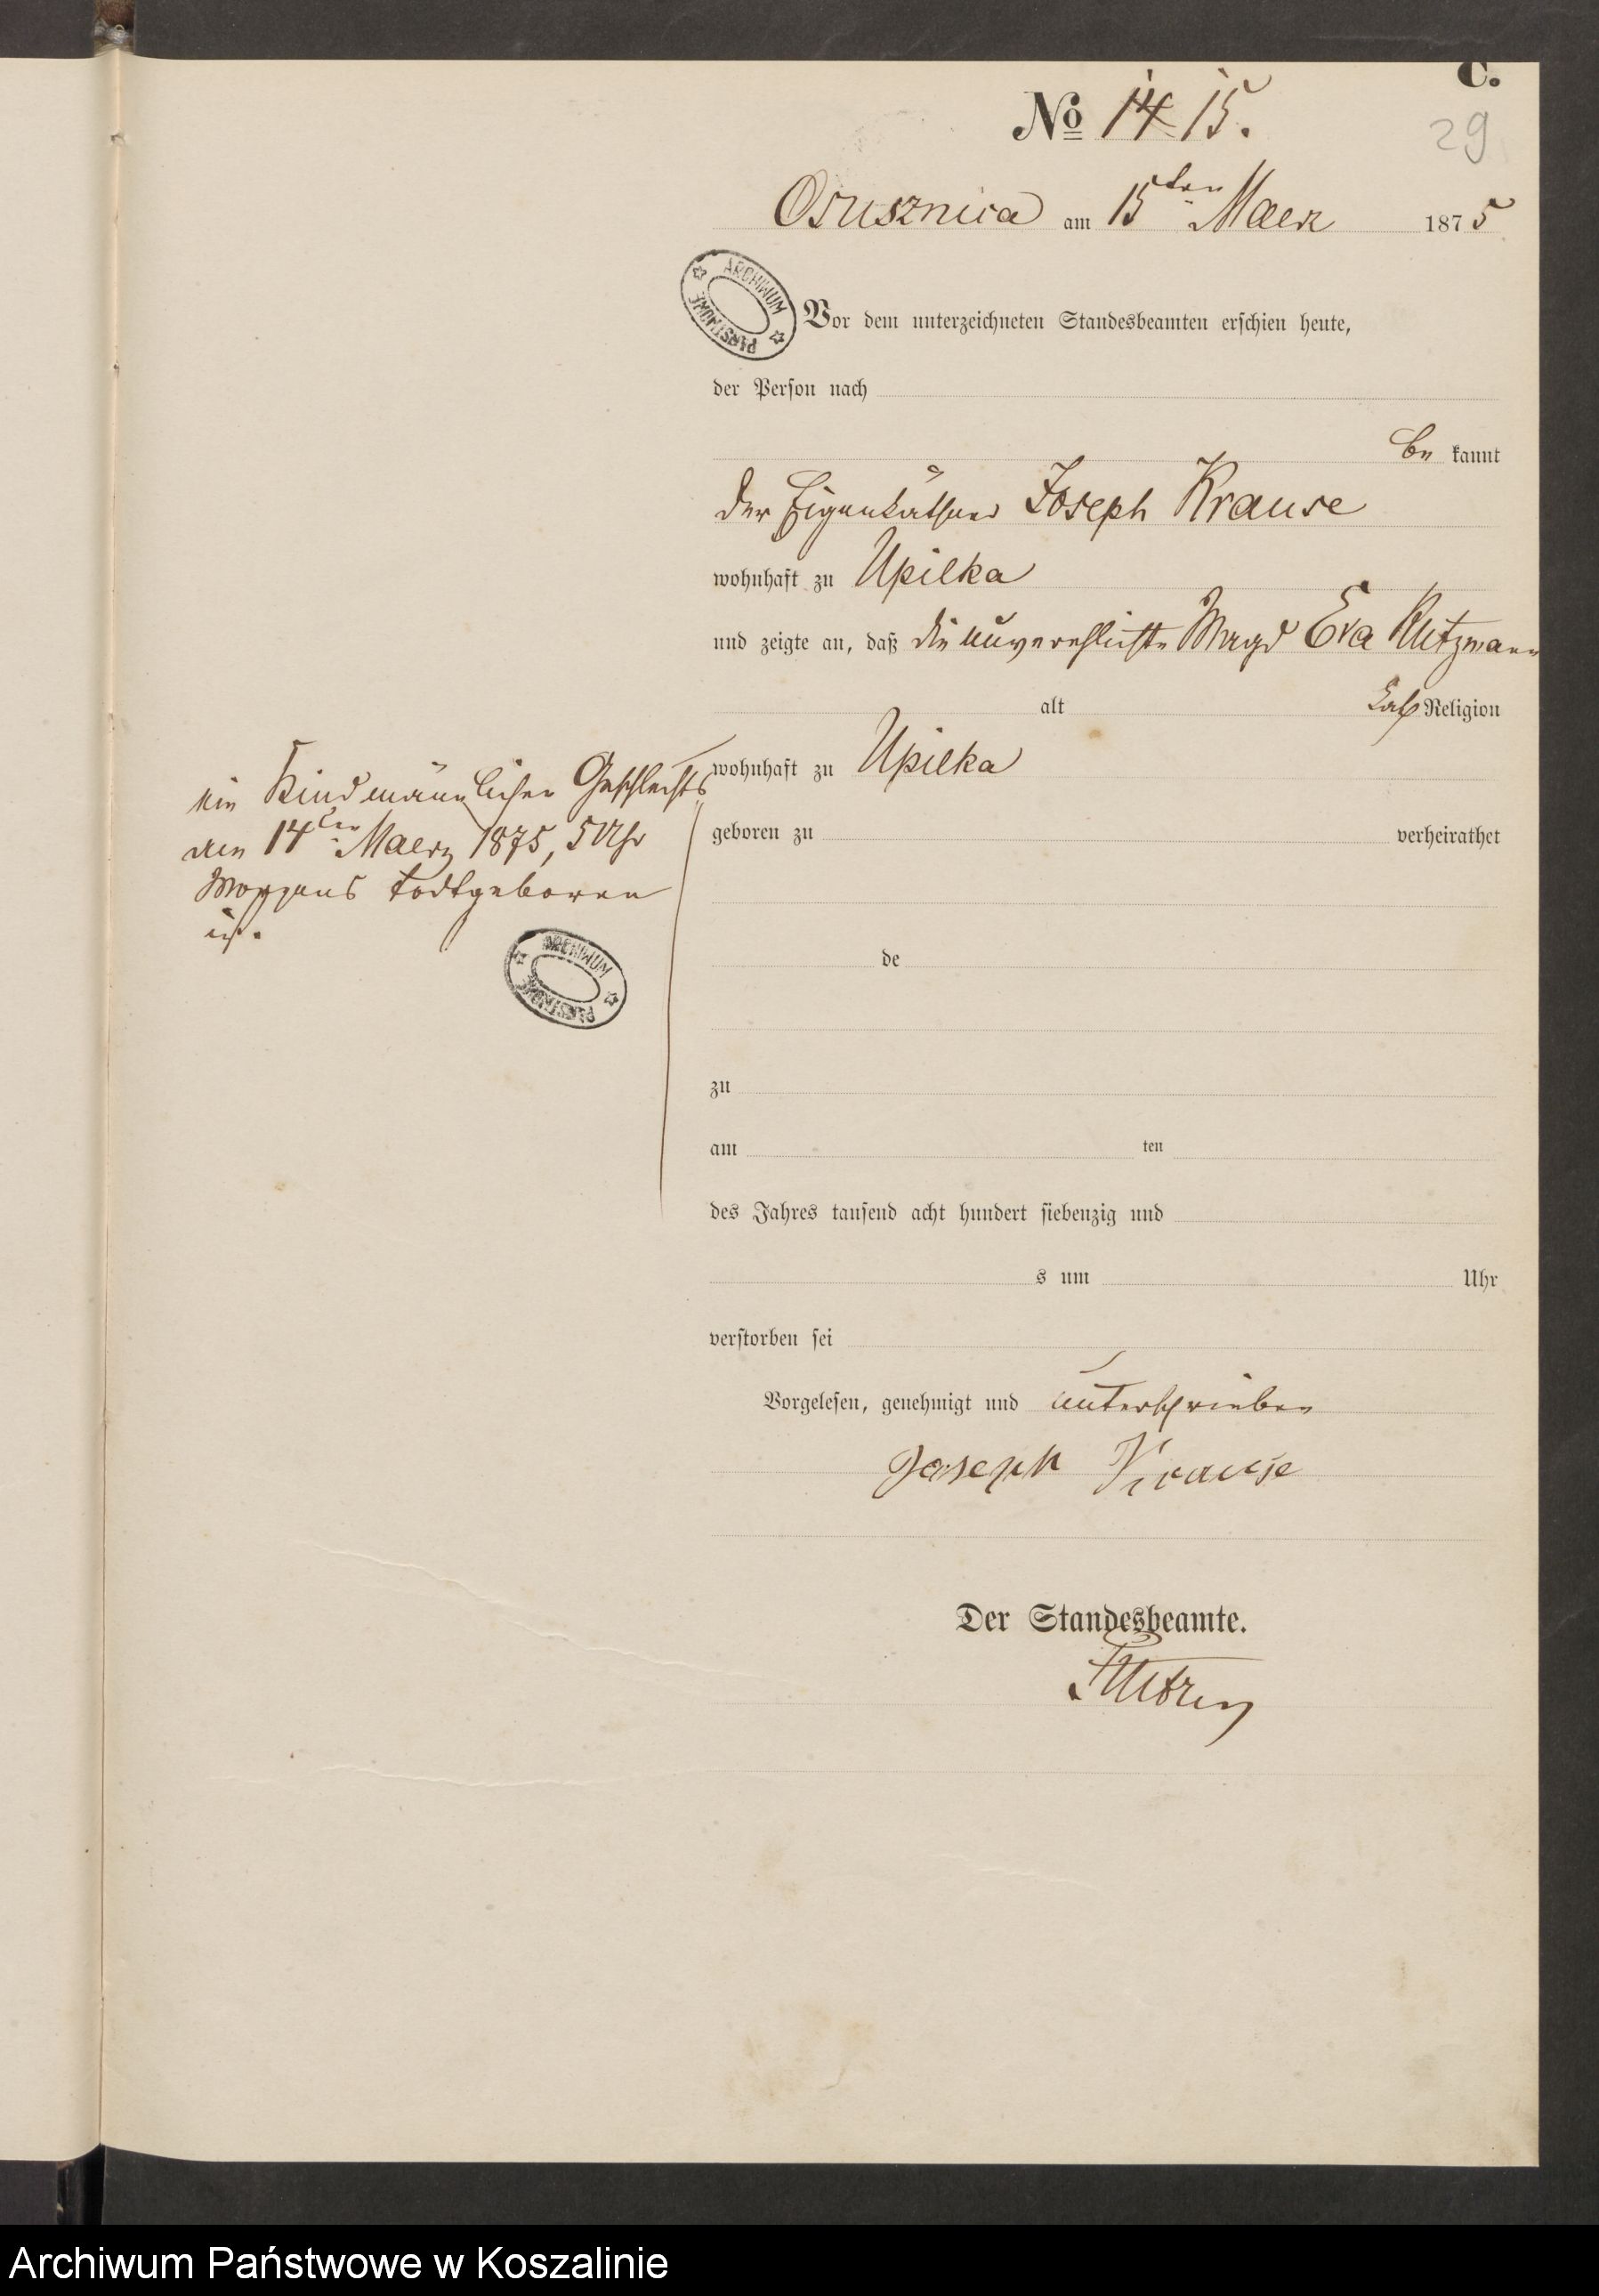 C.
No 14 15.
29
Osusznica am 15ten Maerz 1875
ARCHIWUM PAŃSTWOWE
Vor dem unterzeichneten Standesbeamten erschien heute,
der Person nach
be kannt
der Eigenkäthner Joseph Krause
wohnhaft zu Upilka
und zeigte an, daß die unverehlichte Magd Eva Klitzmann
alt Kath Religion
wohnhaft zu Upilka
geboren zu verheirathet
ein Kind männlichen Geschlechts
am 14ten Maerz 1875, 5 Uhr
Morgens todtgeboren
ist.
ARCHIWUM PAŃSTWOWE
de
zu
am ten
des Jahres tausend acht hundert siebenzig und
s um Uhr
verstorben sei
Vorgelesen, genehmigt und unterschrieben
Joseph Krause
Der Standesbeamte.
Archiwum Państwowe w Koszalinie